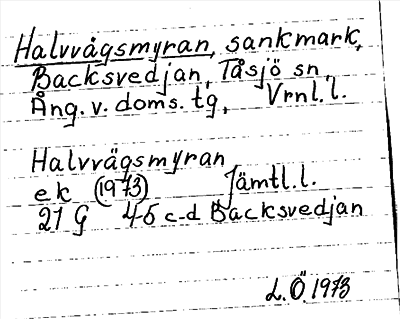 Halvvägsmyran, sankmark,
Backsvedjan, Tåsjö sn,
Ång. v. doms. tg, Vrnl. l.
Halvvägsmyran
ek (1973) Jämtl. l.
21 G 45 c-d Backsvedjan
L. Ö. 1973